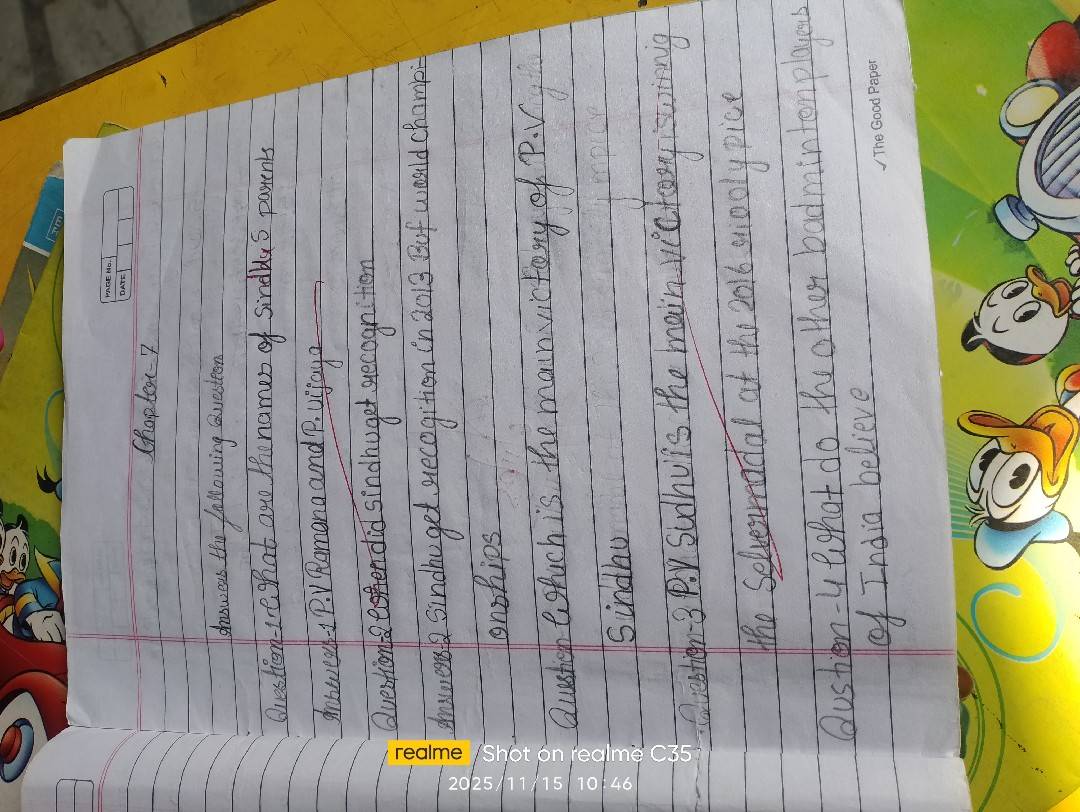 PAGE No.
DATE
Chapter-7
Answer the following Question
Question-1 What are the names of Sindhu's parents
Answer-1 P.V Ramana and P. vijaya
Question-2 when did sindhu get recognition
Answer-2 Sindhu get recogition in 2013 Bwf world champi-
onships
Question Which is the main victory of P.V
Sindhu
Question-3 P.V Sindhu is the main victory is winnig
the Selvermadal at the 2016 rioolypice
Qustion-4 What do the other badminton players
of India believe
The Good Paper
realme Shot on realme C35
2025/11/15 10:46